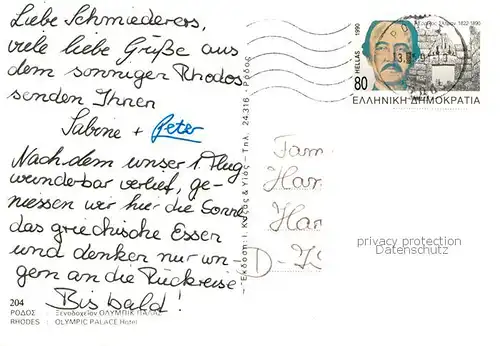 Liebe Schmiederers,
viele liebe Grüße aus
dem sonnigen Rhodos
senden Ihnen
Sabine + Peter
Nachdem unser 1. Flug
wunderbar verlief, ge-
niessen wir hier die Sonne
das griechische Essen
und denken nur un-
gern an die Rückreise
Bis bald!
204
ΡΟΔΟΣ : Ξενοδοχείον ΟΛΥΜΠΙΚ ΠΑΛΑΣ
RHODES : OLYMPIC PALACE Hotel
– Έκδοση: Ι. Κυζός & Υιός – Τηλ. 24.316 – Ρόδος
1990
1822-1890
HELLAS
80
ΕΛΛΗΝΙΚΗ ΔΗΜΟΚΡΑΤΙΑ
Fam
Han
Han
D-
privacy protection
Datenschutz